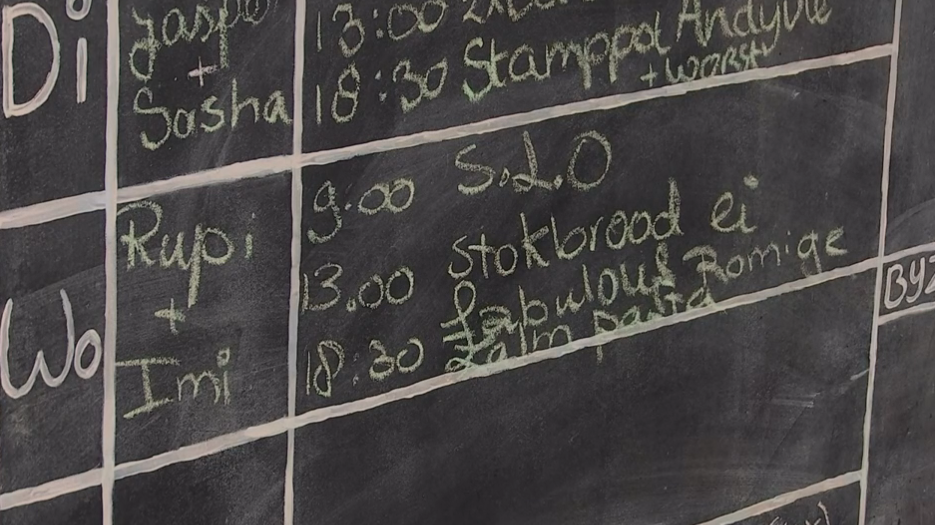 Di
+
Sasha
13:00
18:30 Stamppot Andijvie
+ worst
Wo
Rupi
+
Imi
9:00 S.L.O
13.00 Stokbrood ei
18:30 Fabulous Romige
Zalm pasta
BYZ